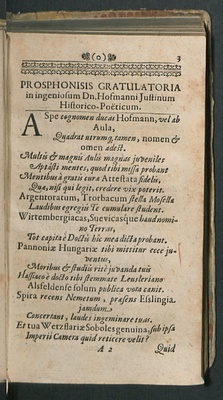 (o) 3
PROSPHONISIS GRATULATORIA
in ingeniosum Dn. Hofmanni Justinum
Historico-Poëticum.
A Spe cognomen ducas Hofmann, vel ab
Aula,
Quadrat utrumq; tamen, nomen &
omen adest.
Multis & magnis Aulis magnas juveniles
Aptasti mentes, quod tibi missa probant
Mentibus à gratis cura Attestata fidelis,
Qua, nisi qui legit, credere vix poterit.
Argentoratum, Trorbacum stella Mosella
Laudibus egregiis Te cumulare student.
Wirtembergiacas, Suevicasque haud nomi-
no Terras,
Tot capita è Doctis hic mea dicta probant.
Pannoniæ Hungariæ tibi mittitur ecce ju-
ventus,
Moribus & studiis ritè juvanda tuis
Hassiaco è docto tibi stemmate Leusleriano
Alsfeldense solum publica vota canit.
Spira recens Nemetum, præsens Esslinga.
jamdum
Concertant, laudes ingeminare tuas.
Et tua Wetzflariæ Soboles genuina, sub ipsa
Imperii Camera quid reticere velit?
A 2 Quid